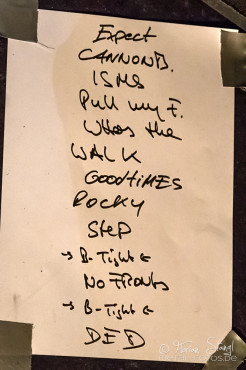 Expect
CANNONB.
ISMS
Pull my F.
Whos the
WALK
GOODTIMES
ROCKY
STEP
→ B-Tight ←
NO FRONTS
→ B-Tight ←
DED
© Florian Stangl